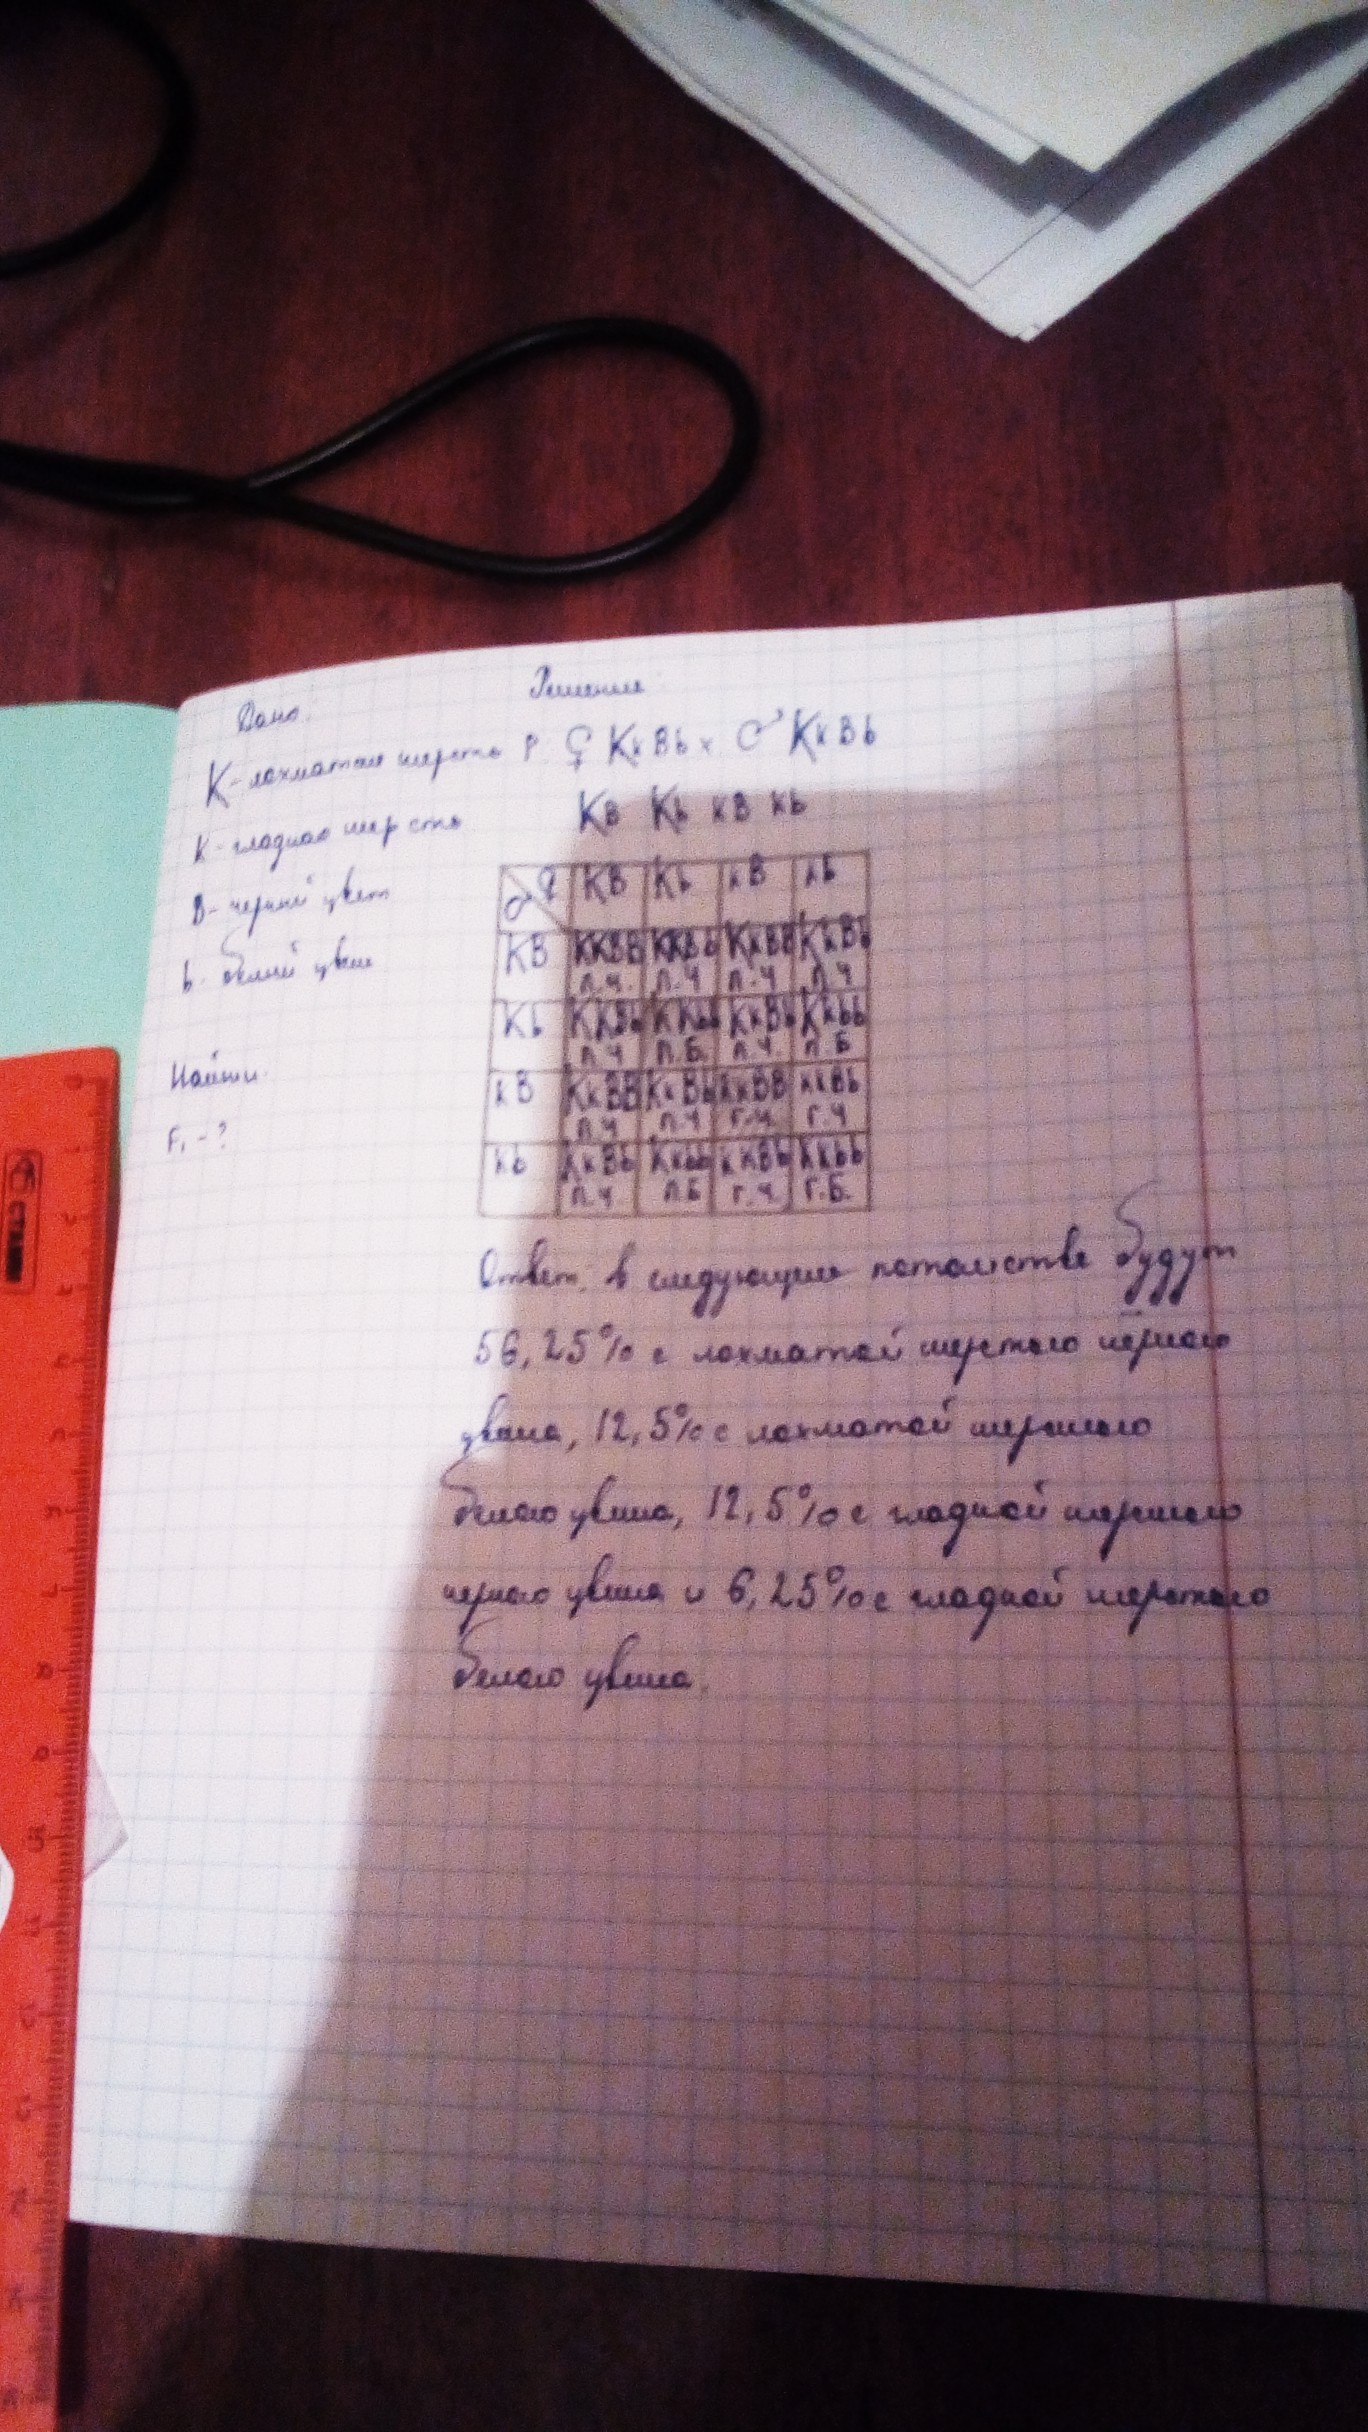 Дано: Решение:
K - лохматая шерсть P: ♀ KkBb x ♂ KkBb
k - гладкая шерсть KB Kb kB kb
B - черный цвет
b - белый цвет
♂ ♀ KB Kb kB kb
KB KKBB KKBb KkBB KkBb
л.ч. л.ч л.ч л.ч
Kb KKBb KKbb KkBb Kkbb
л.ч л.Б. л.ч. л.Б
kB KkBB KkBb kkBB kkBb
л.ч л.ч г.ч. г.ч
kb KkBb Kkbb kkBb kkbb
л.ч л.Б г.ч. г.Б.
Найти:
F₁ - ?
Ответ: в следующем потомстве будут
56,25% с лохматой шерстью чёрного
цвета, 12,5% с лохматой шерстью
белого цвета, 12,5% с гладкой шерстью
черного цвета и 6,25% с гладкой шерстью
белого цвета.